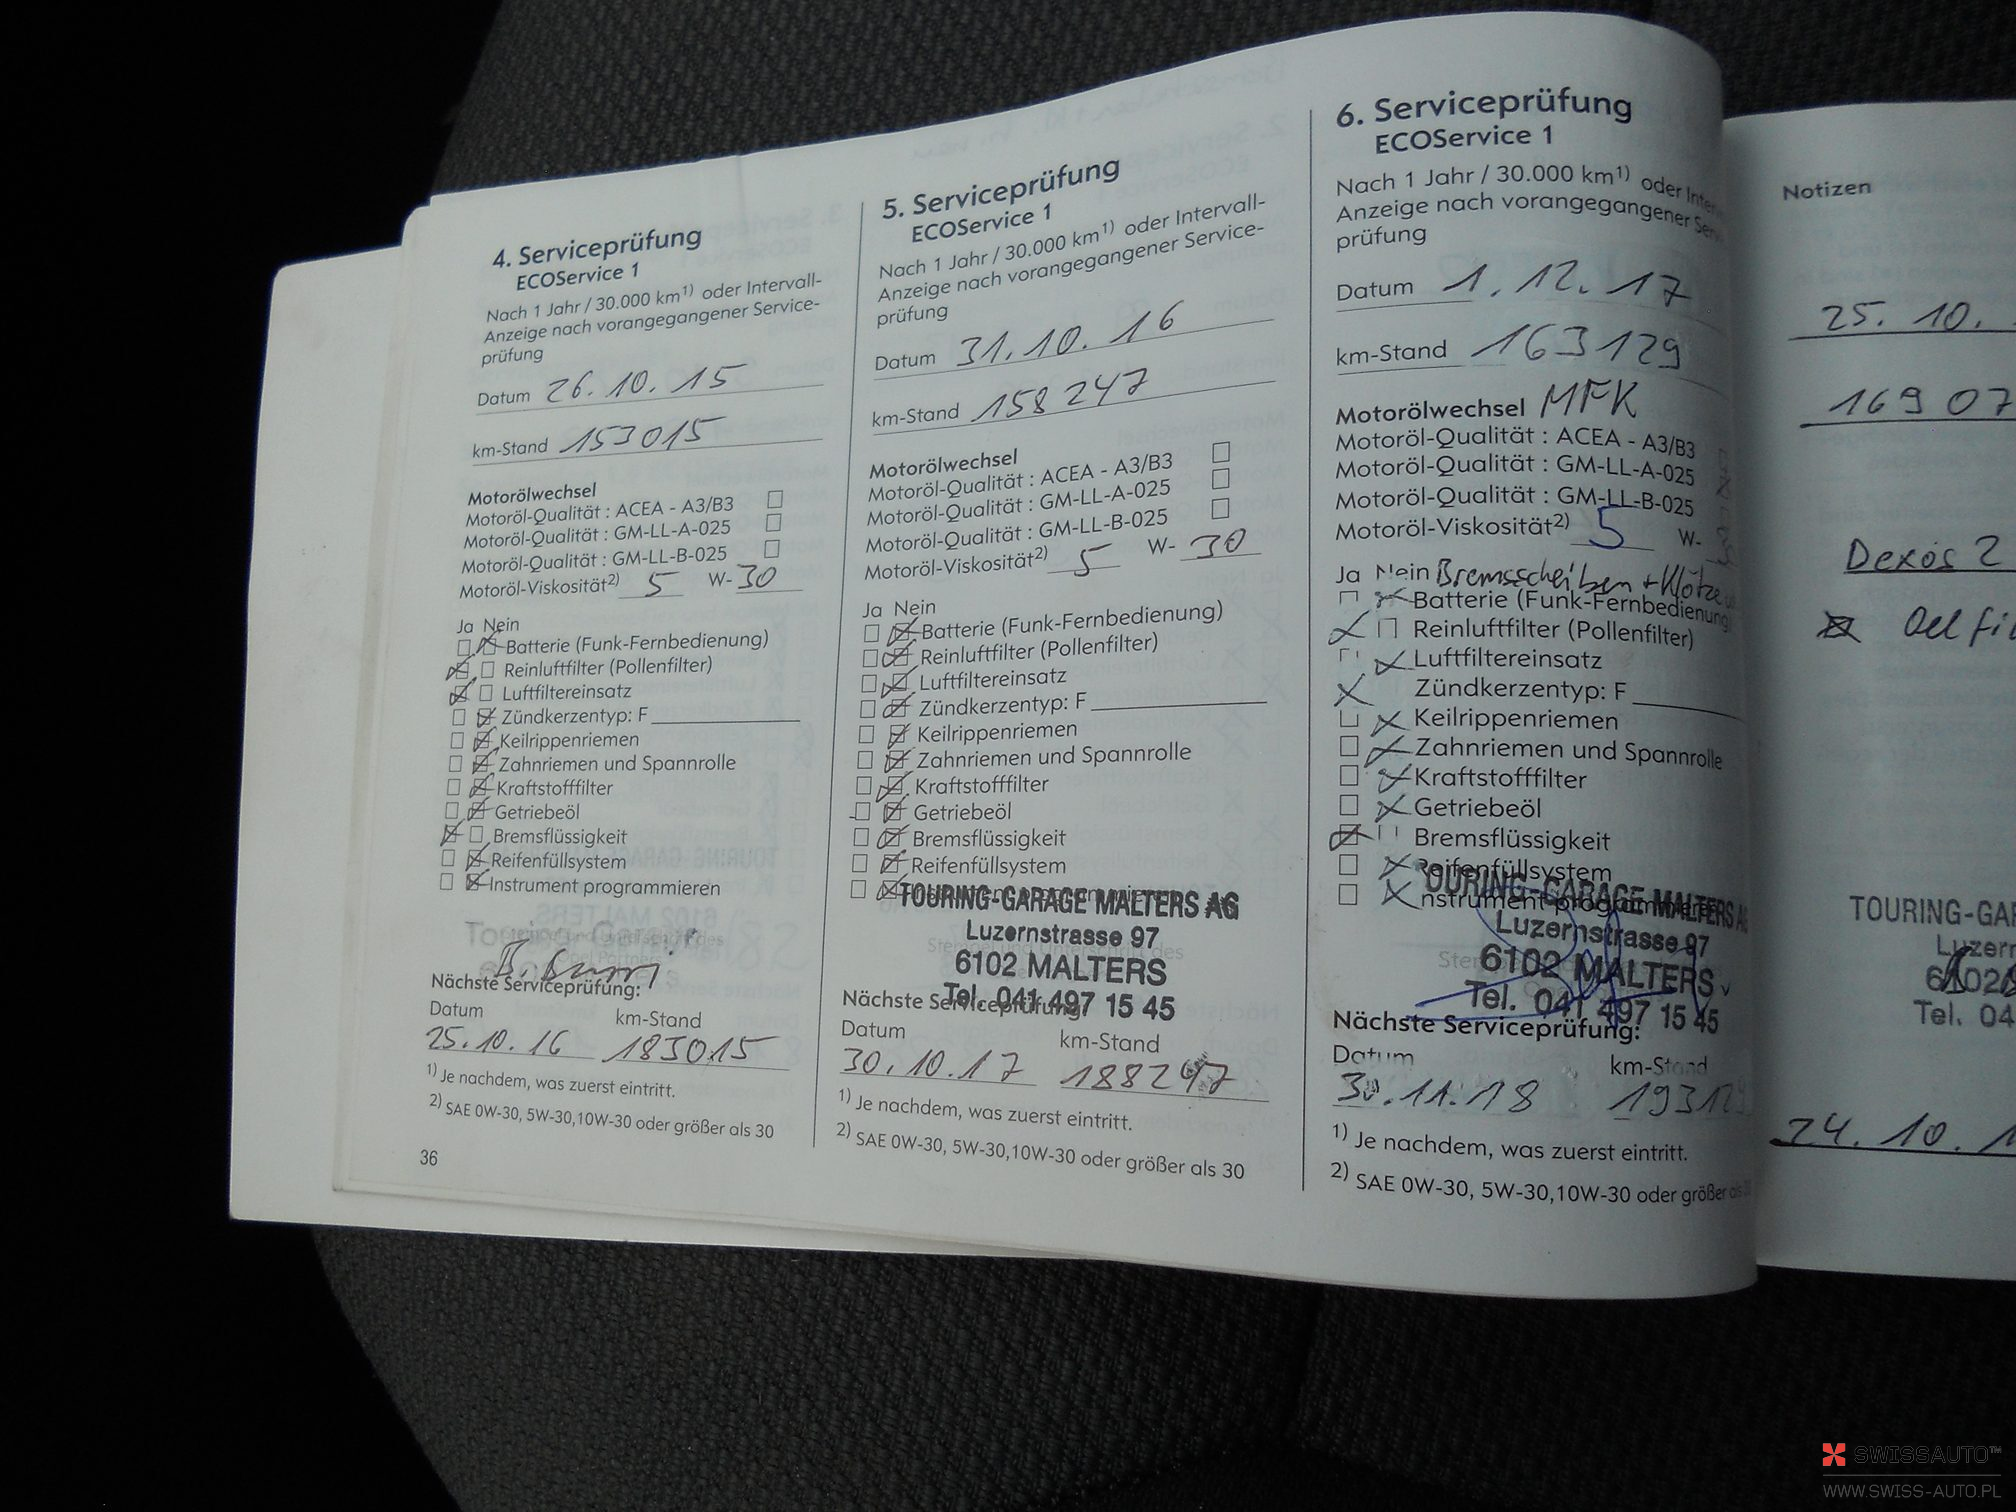 4. Serviceprüfung
ECOService 1
Nach 1 Jahr / 30.000 km1) oder Intervall-
Anzeige nach vorangegangener Service-
prüfung
Datum 26.10.15
km-Stand 153015
Motorölwechsel
Motoröl-Qualität : ACEA - A3/B3
Motoröl-Qualität : GM-LL-A-025
Motoröl-Qualität : GM-LL-B-025
Motoröl-Viskosität2) 5 W-30
Ja Nein
Batterie (Funk-Fernbedienung)
Reinluftfilter (Pollenfilter)
Luftfiltereinsatz
Zündkerzentyp: F
Keilrippenriemen
Zahnriemen und Spannrolle
Kraftstofffilter
Getriebeöl
Bremsflüssigkeit
Reifenfüllsystem
Instrument programmieren
Nächste Serviceprüfung:
Datum km-Stand
25.10.16 183015
1) Je nachdem, was zuerst eintritt.
2) SAE 0W-30, 5W-30,10W-30 oder größer als 30
36
5. Serviceprüfung
ECOService 1
Nach 1 Jahr / 30.000 km1) oder Intervall-
Anzeige nach vorangegangener Service-
prüfung
Datum 31.10.16
km-Stand 158247
Motorölwechsel
Motoröl-Qualität : ACEA - A3/B3
Motoröl-Qualität : GM-LL-A-025
Motoröl-Qualität : GM-LL-B-025
Motoröl-Viskosität2) 5 W- 30
Ja Nein
Batterie (Funk-Fernbedienung)
Reinluftfilter (Pollenfilter)
Luftfiltereinsatz
Zündkerzentyp: F
Keilrippenriemen
Zahnriemen und Spannrolle
Kraftstofffilter
Getriebeöl
Bremsflüssigkeit
Reifenfüllsystem
TOURING-GARAGE MALTERS AG
Luzernstrasse 97
6102 MALTERS
Tel. 041 497 15 45
Nächste Serviceprüfung:
Datum km-Stand
30.10.17 188247
1) Je nachdem, was zuerst eintritt.
2) SAE 0W-30, 5W-30,10W-30 oder größer als 30
6. Serviceprüfung
ECOService 1
Nach 1 Jahr / 30.000 km1) oder
Anzeige nach vorangegangener
prüfung
Datum 1.12.17
km-Stand 163129
Motorölwechsel MFK
Motoröl-Qualität : ACEA - A3/B3
Motoröl-Qualität : GM-LL-A-025
Motoröl-Qualität : GM-LL-B-025
Motoröl-Viskosität2) 5 W-
Ja Nein Bremsscheiben + Klötze
Batterie (Funk-Fernbedienung)
Reinluftfilter (Pollenfilter)
Luftfiltereinsatz
Zündkerzentyp: F
Keilrippenriemen
Zahnriemen und Spannrolle
Kraftstofffilter
Getriebeöl
Bremsflüssigkeit
Reifenfüllsystem
TOURING-GARAGE MALTERS AG
Instrument programmieren
Luzernstrasse 97
6102 MALTERS
Tel. 041 497 15 45
Nächste Serviceprüfung:
Datum km-Stand
30.11.18 193129
1) Je nachdem, was zuerst eintritt.
2) SAE 0W-30, 5W-30,10W-30 oder größer als 30
Notizen
25. 10.
16907
Dexos 2
Oelfil
TOURING-GA
Luzern
6102
Tel. 04
24. 10. 1
SWISSAUTO™
WWW.SWISS-AUTO.PL